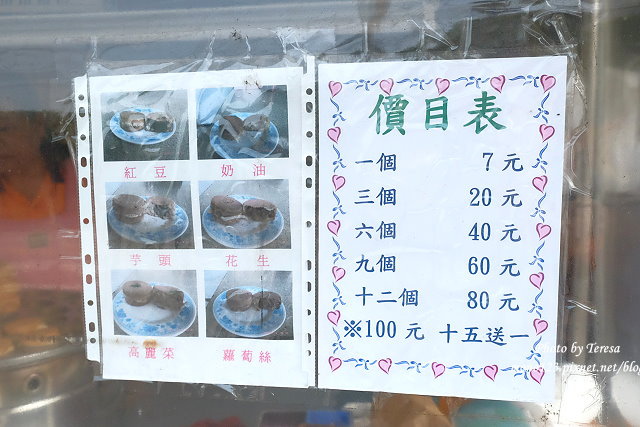 紅豆 奶油
芋頭 花生
高麗菜 蘿蔔絲
價目表
一個 7元
三個 20元
六個 40元
九個 60元
十二個 80元
※100元 十五送一
Photo by Teresa